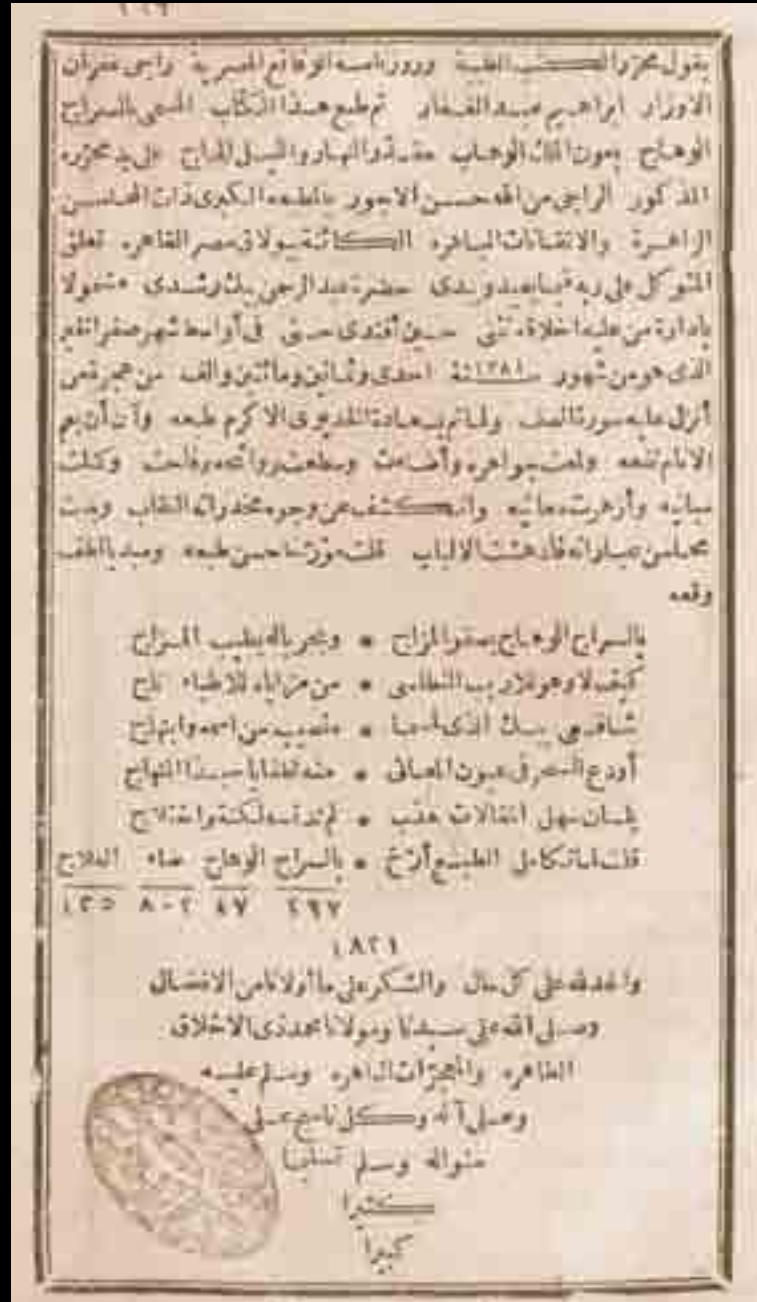 يقول محرر الكتب الطبية وروزنامة الوقائع المصرية راجي غفران
الاوزار ابراهيم عبد الغفار تم طبع هذا الكتاب المسمى بالسراج
الوهاج بعون الملك الوهاب والليل الداج على يد محرره
المذكور الراجي من الله حسن الاجور بالمطبعة الكبرى ذات المحاسن
الزاهرة والاتقانات الباهره الكائنة ببولاق مصر القاهره تعلق
المتوكل على ربه فيما يعيد ويبدى حضرة عبد الرحمن بيك رشدى مشمولا
بادارة من عليه اخلاقه تثنى حسين أفندى حسنى فى أواسط شهر صفر
الذى هو من شهور سنة ١٢٨١ احدى وثمانين ومائتين والف من هجرة من
أنزل عليه سورة الصف ولما تم بسعادة الخديوى الاكرم طبعه وآن أن يعم
الانام نفعه ولمعت جواهره وأضاءت وسطعت روائحه وفاحت وكملت
مبانيه وأزهرت معانيه وانكشف عن وجوه مخدراته النقاب وبدت
محاسن عباراته فأدهشت الالباب قلت مؤرخا حسن طبعه ومبديا لطف
وقعه
بالسراج الوهاج يصفو المزاج * وبجرياله يطيب المزاج
كيف لا وهو للاريب النطاسى * من مزاياه للاطباء تاج
شافعى بيك الذى * نصيب من اسمه وابتهاج
أودع السحر فى عيون المعانى * منه حبذا المنهاج
بلسان سهل المقالات عذب * لم لكنة واختلاج
قلت لما تكامل الطبع أرخ * بالسراج الوهاج ضاء العلاج
٢٩٧ ٤٧ ٨٠٢ ١٣٥
١٢٨١
والحمد لله على كل حال والشكر على ما أولانا من الافضال
وصلى الله على سيدنا ومولانا محمد ذى الاخلاق
الطاهره والمعجزات الباهره وسلم عليه
وعلى آله وكل ناسج على
منواله وسلم تسليما
كثيرا
كبيرا